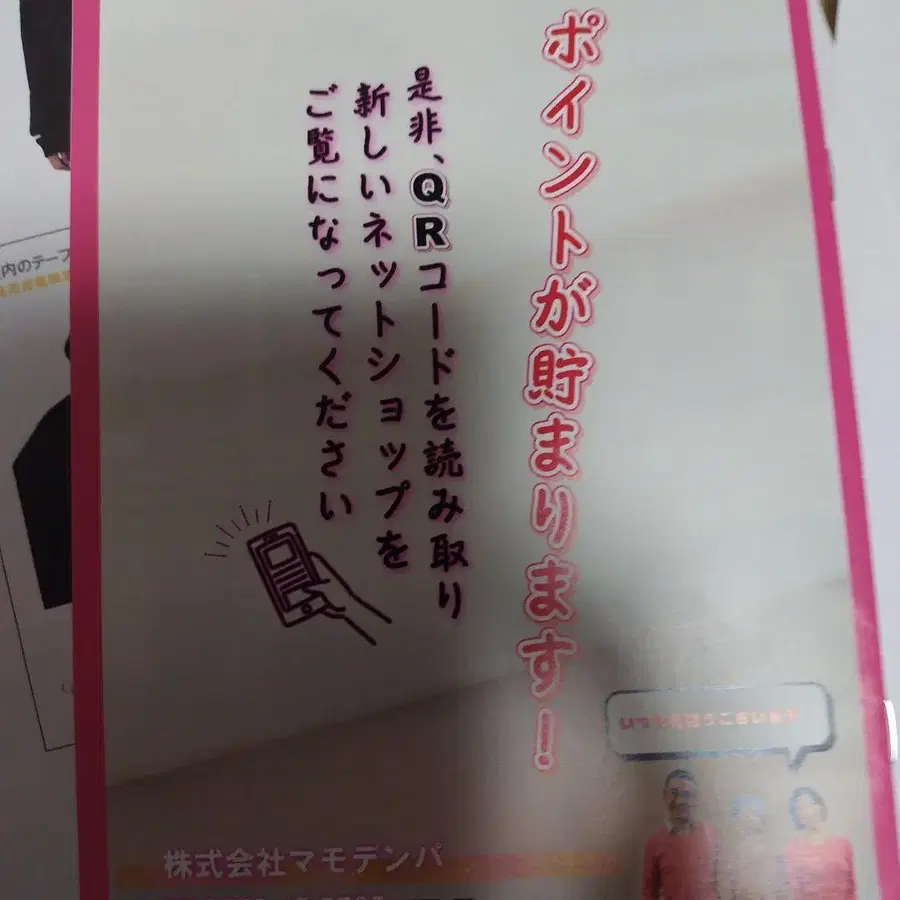 ポイントが貯まります!
是非、QRコードを読み取り
新しいネットショップを
ご覧になってください
株式会社マモデンパ
内のテープ